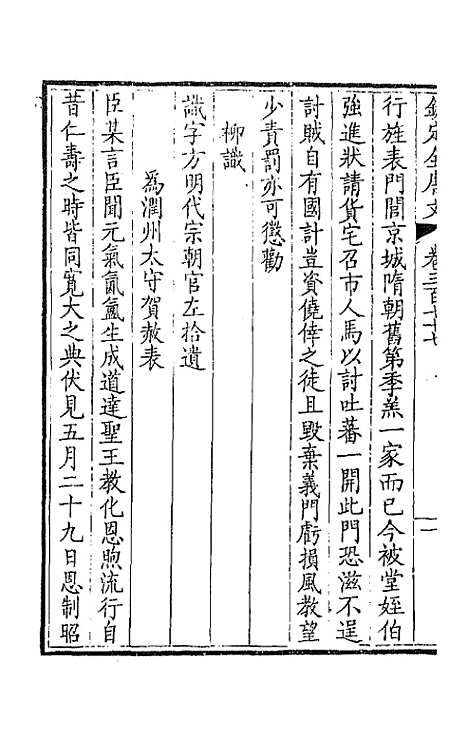 欽定全唐文 卷三百七十七 一
行旌表門閭京城隋朝舊第季羔一家而已今被堂姪伯
強進狀請貨宅召市人馬以討吐蕃一開此門恐滋不逞
討賊自有國計豈資僥倖之徒且毀棄義門虧損風教望
少責罰亦可懲勸
柳識
識字方明代宗朝官左拾遺
爲潤州太守賀赦表
臣某言臣聞元氣氤氳生成道達聖王教化恩煦流行自
昔仁壽之時皆同寬大之典伏見五月二十九日恩制昭